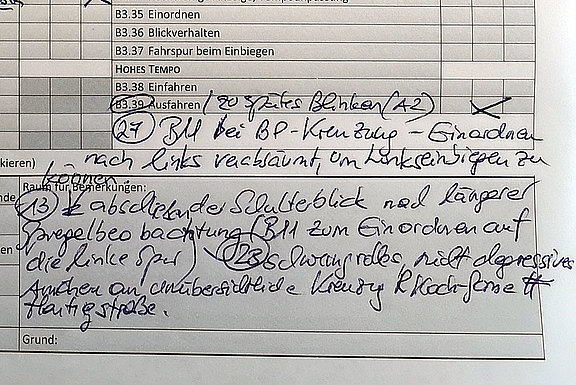 B3.35 Einordnen
B3.36 Blickverhalten
B3.37 Fahrspur beim Einbiegen
HOHES TEMPO
B3.38 Einfahren
B3.39 Ausfahren / zu spätes Blinken (A2)
27 B11 bei BP-Kreuzung - Einordnen
kieren) nach links verabsäumt, um Linkseinbiegen zu
können.
nde Raum für Bemerkungen:
13 abschließender Schulterblick nach längerer
Spiegelbeobachtung (B11 zum Einordnen auf
en die linke Spur) 23 schwungvolles, nicht degressives
an unübersichtliche Kreuzung
straße.
Grund: